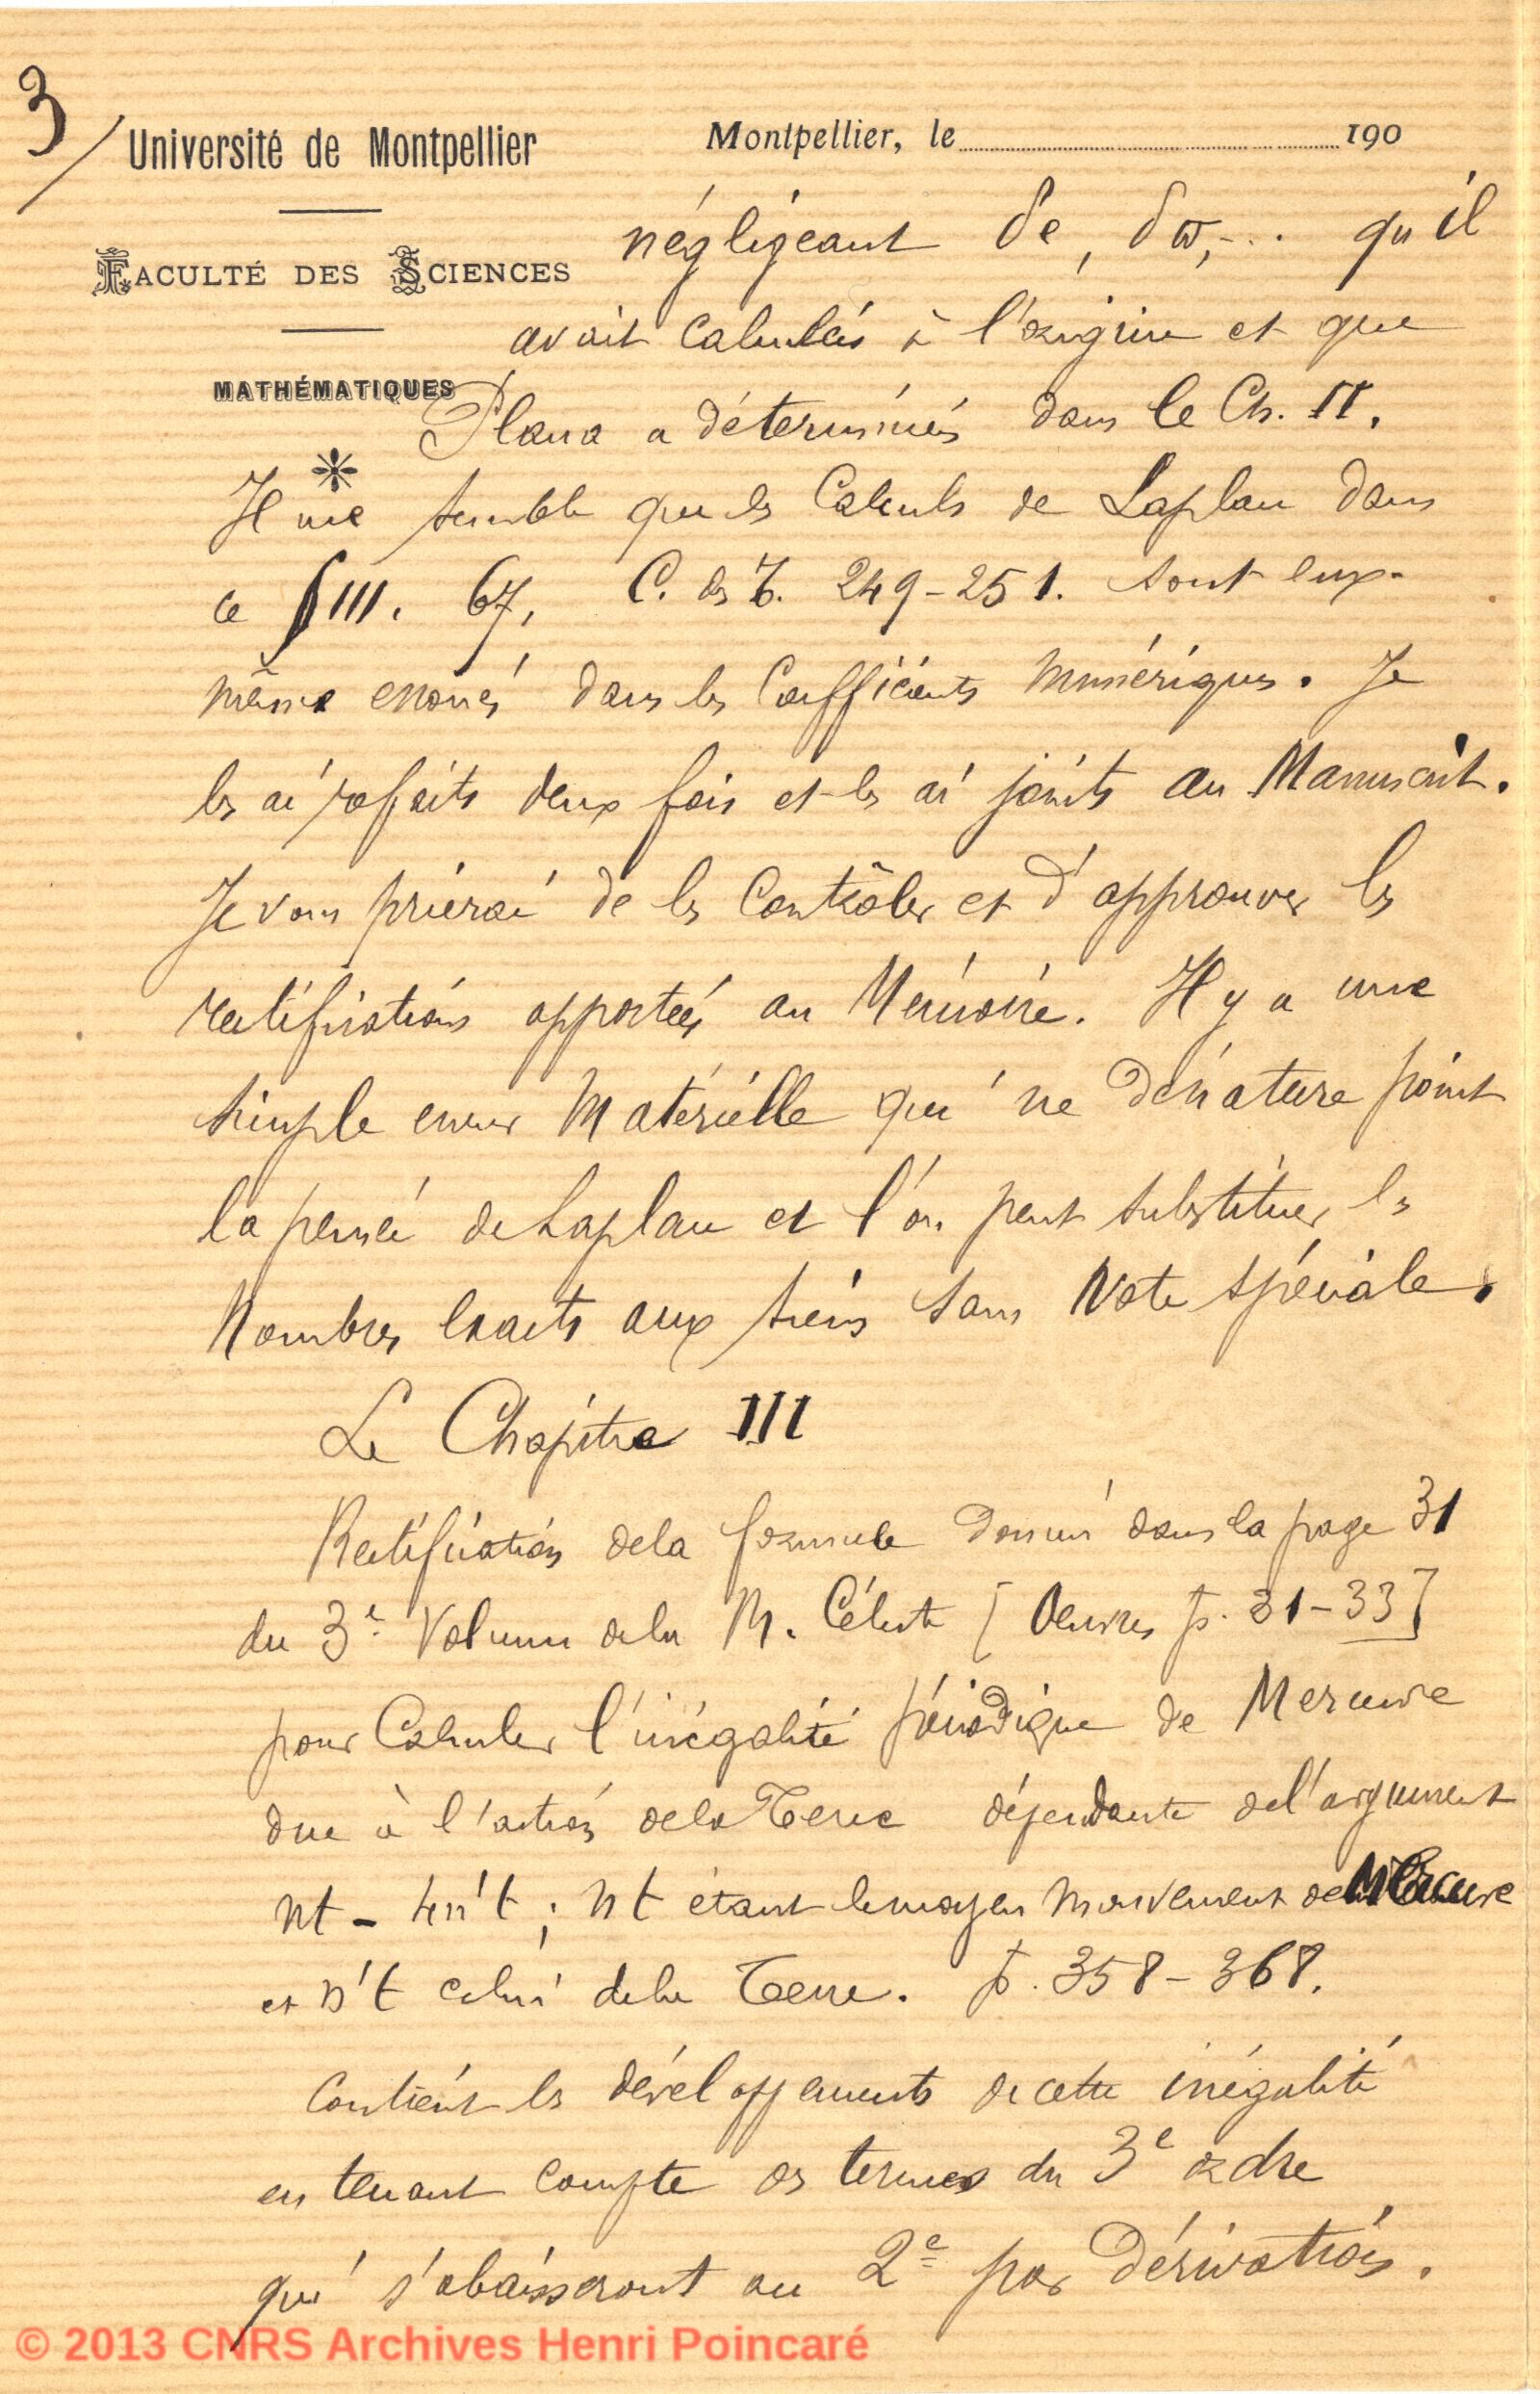 3/
Université de Montpellier
Montpellier, le 190
FACULTÉ DES SCIENCES
MATHÉMATIQUES
négligeant δe, δϖ, ... qu'il
avait calculés à l'origine et que
Plana a déterminés dans le Ch. II.
Il me semble que les Calculs de Laplace dans
ce § III. 67, C. des T. 249-251. sont eux-
même erronés dans les Coefficients numériques. Je
les ai refaits deux fois et les ai joints au Manuscrit.
Je vous prierai de les Contrôler et d'approuver les
rectifications apportées au Mémoire. Il y a une
simple erreur Matérielle qui ne dénature point
la pensée de Laplace et l'on peut substituer les
Nombres exacts aux siens sans Note spéciale.
Le Chapitre III
Rectification de la formule donnée dans la page 31
du 3e Volume de la M. Céleste [Oeuvres p. 31-33]
pour Calculer l'inégalité périodique de Mercure
due à l'action de la Terre dépendante de l'argument
nt - 4n't ; nt étant le moyen mouvement de Mercure
et n't celui de la Terre. p. 358-368.
Contient les développements de cette inégalité
en tenant compte des termes du 3e ordre
qui s'abaisseront au 2e par Dérivation.
© 2013 CNRS Archives Henri Poincaré